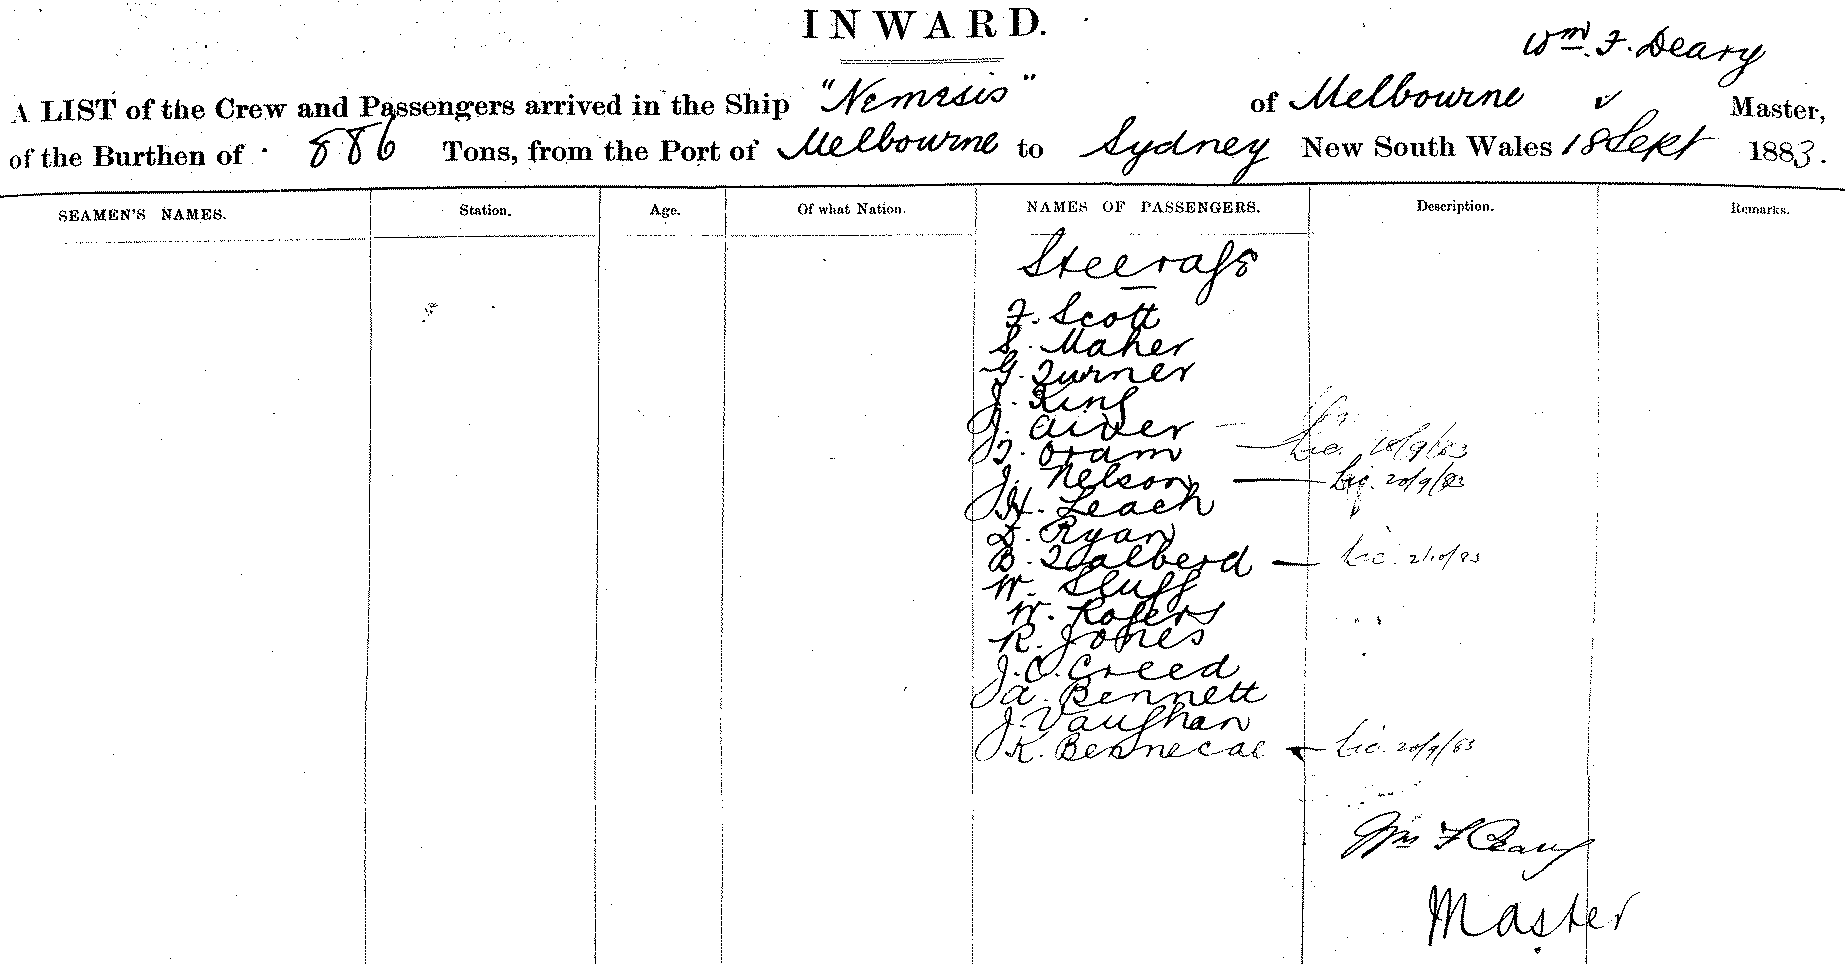 INWARD.
Wm. F. Deary
A LIST of the Crew and Passengers arrived in the Ship "Nemesis" of Melbourne Master,
of the Burthen of 886 Tons, from the Port of Melbourne to Sydney New South Wales 18 Sept 1883.
SEAMEN'S NAMES. Station. Age. Of what Nation. NAMES OF PASSENGERS. Description. Remarks.
Steerage
F. Scott
S. Maher
G. Turner
J. King
J.
T. Oram Lic.
J. Nelson Lic. 20/9/83
H. Leach
Ryan
B. Lic.
W.
W. Rogers
R. Jones
J. O. Creed
A. Bennett
J. Vaughan
K. Lic. 20/9/83
Wm F Deary
Master